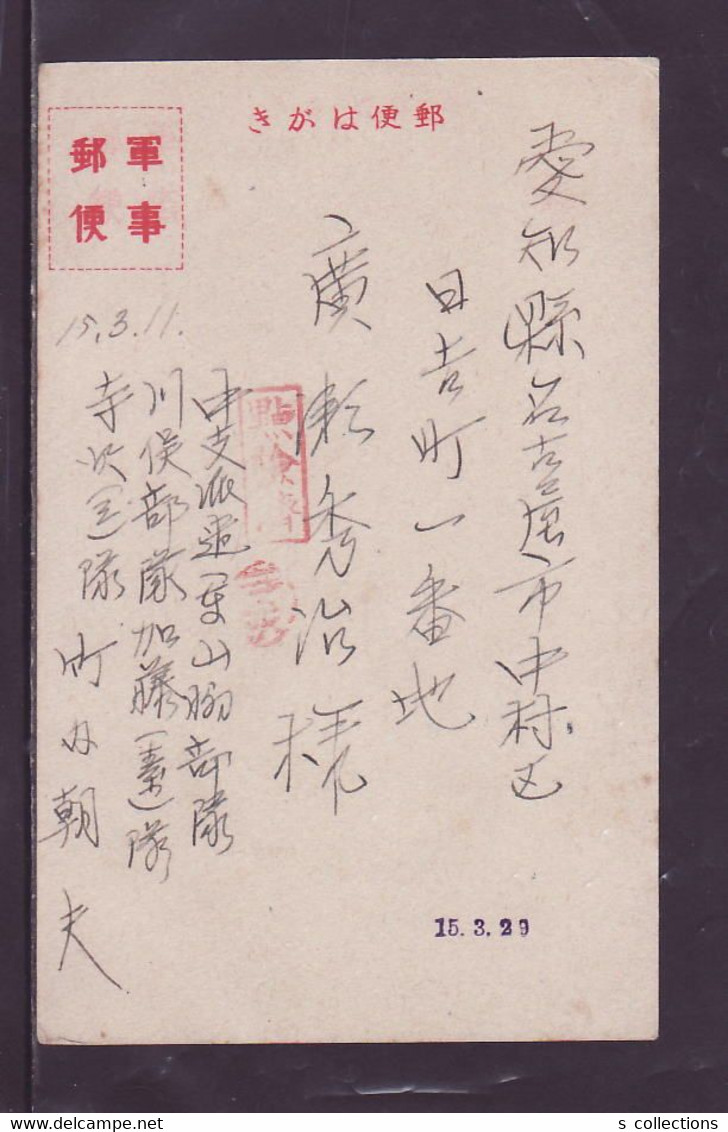 郵便はがき
軍事
郵便
愛知縣名古屋市中村区
日吉町一番地
廣瀬秀治様
15.3.11.
點檢濟
中支派遣軍山脇部隊
川俣部隊加藤(善)隊
寺沢(造)隊
町田朝夫
15.3.29
s collections